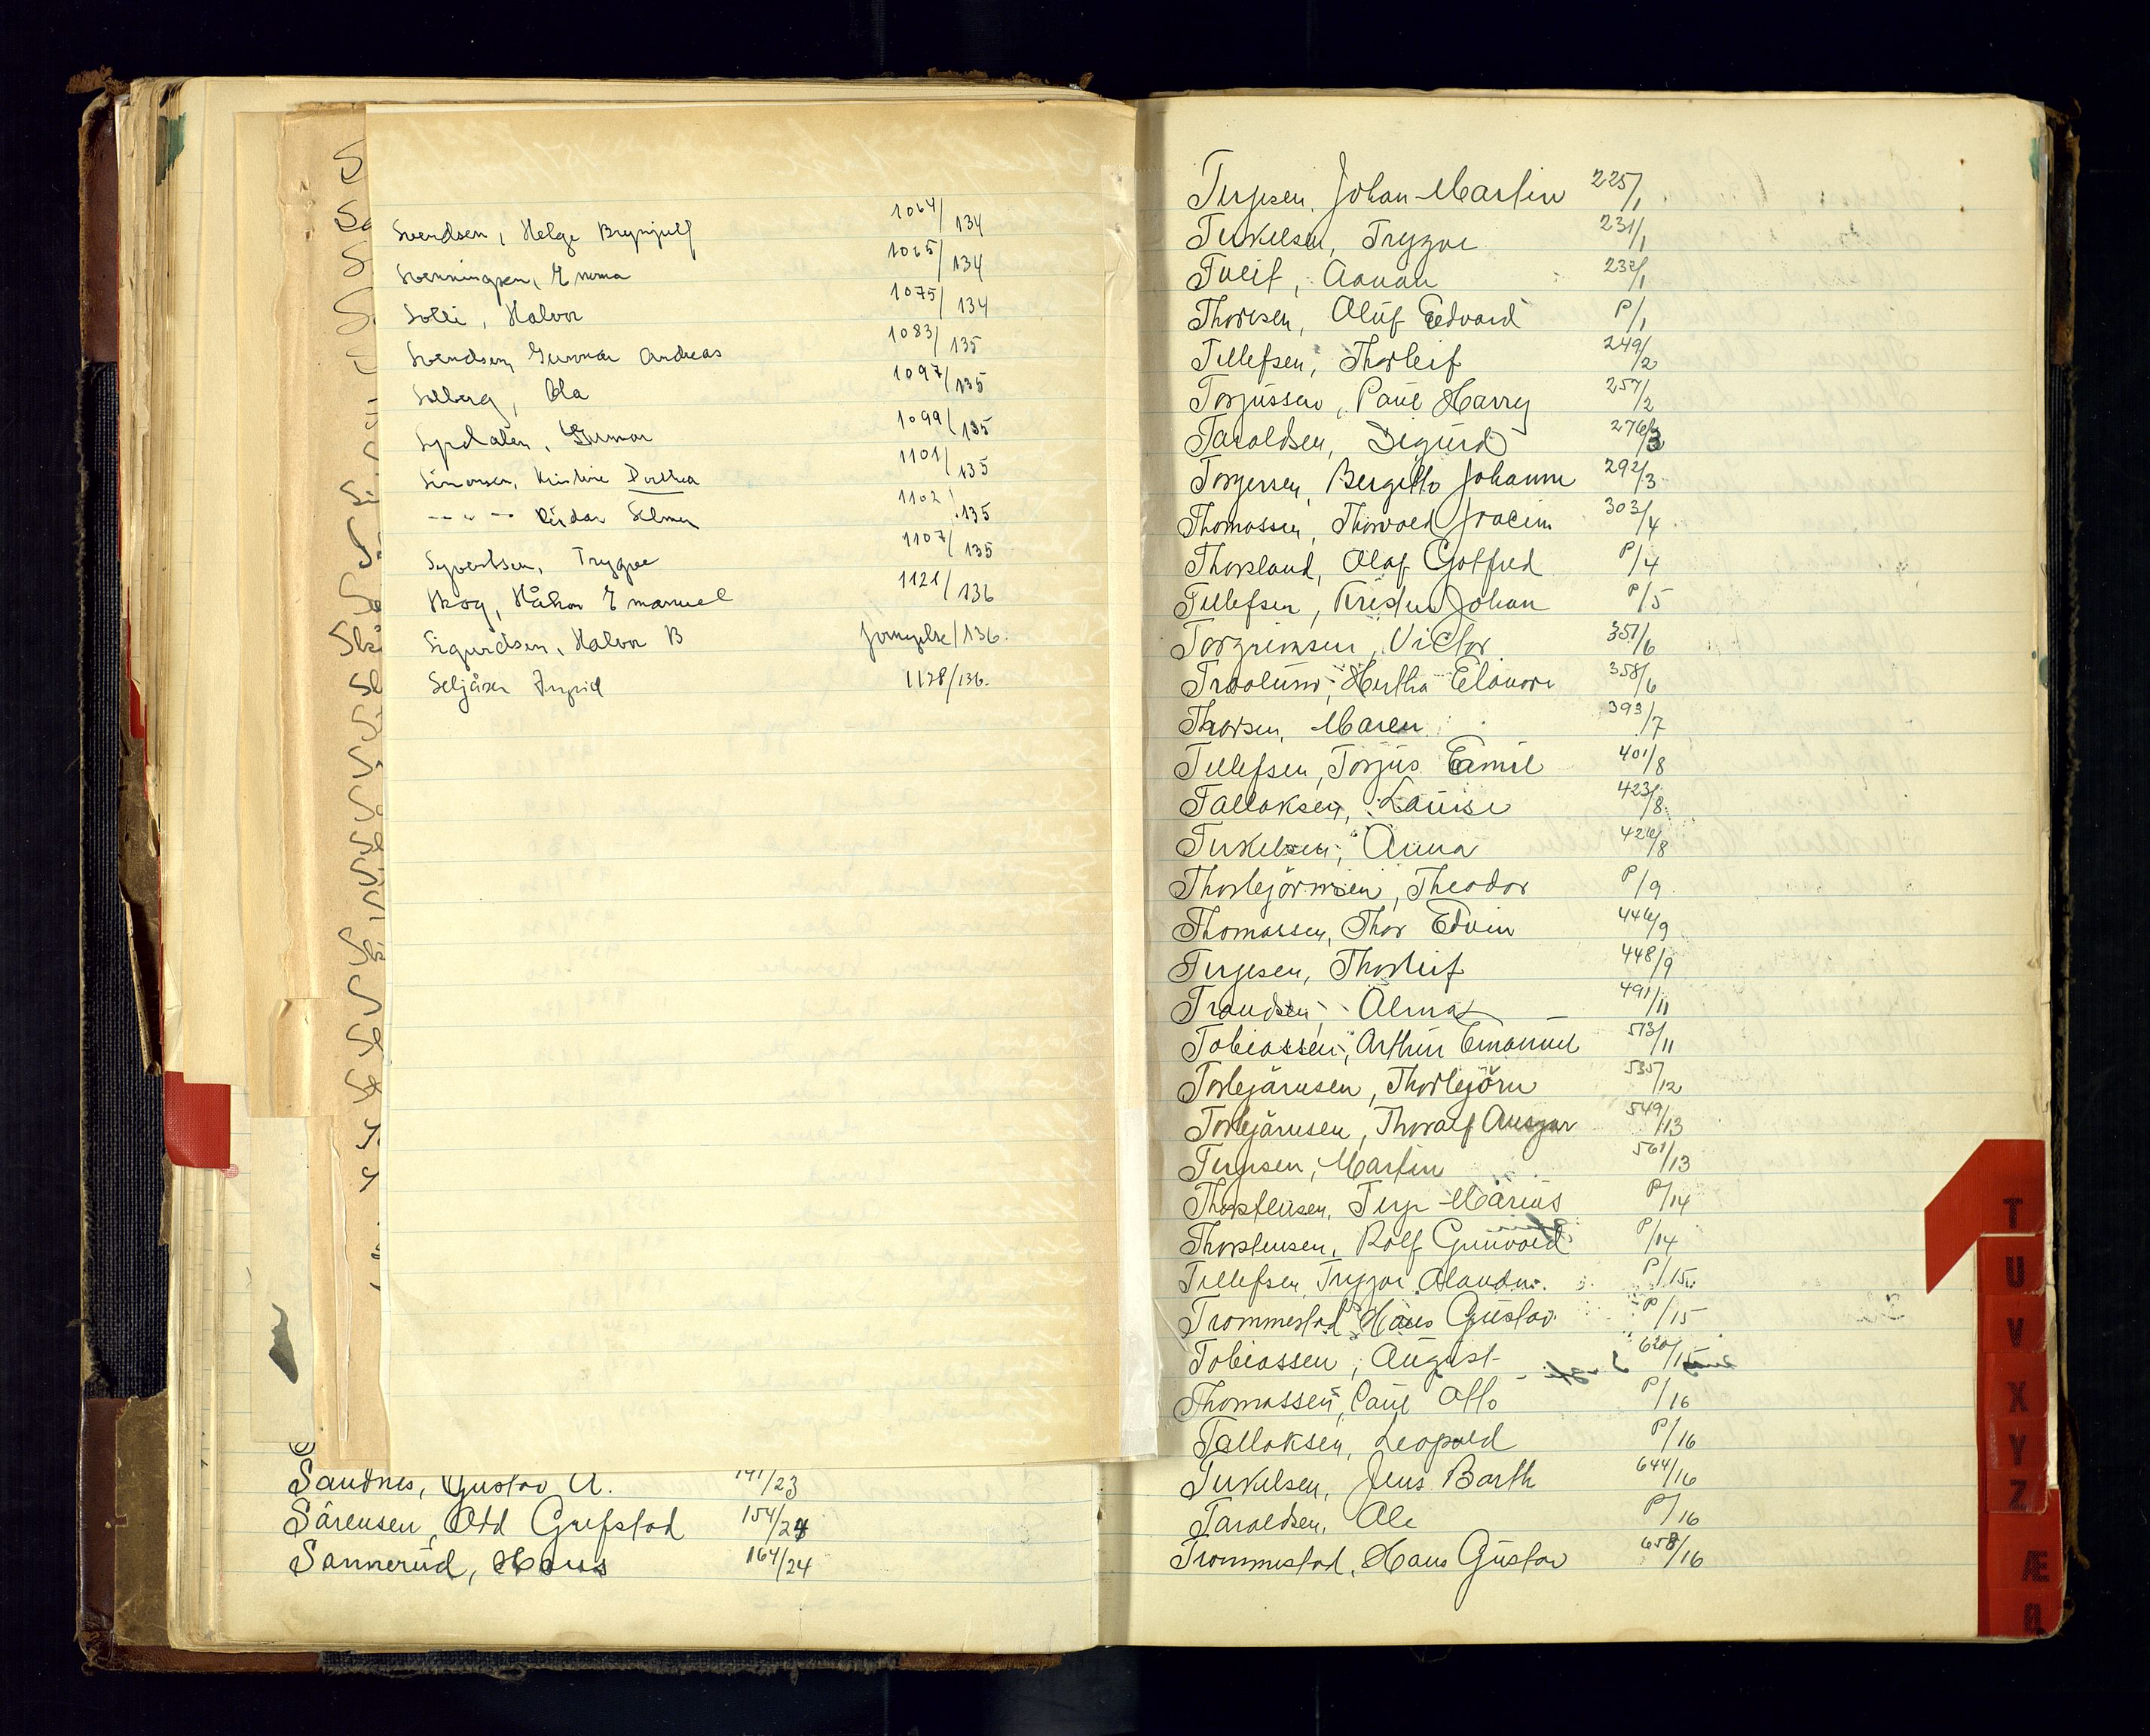 Svendsen, Helge Brynjulf 1064/134
Svenningsen, Emma 1065/134
Solli, Halvor 1075/134
Svendsen, Gunnar Andreas 1083/135
Solberg, Ola 1097/135
Syrdalen, Gunnar 1099/135
Simonsen, Kristine Dorthea 1101/135
-- " -- Reidar Selmer 1102/135
Syvertsen, Trygve 1107/135
Skog, Håkon Emanuel 1121/136
Sigurdsen, Halvor B fornyelse/136.
Seljåsen Ingrid 1128/136.
Sandnes, Gustav A. 141/23
Sörensen, Odd Grefstad 154/24
Sannerud, Hans 164/24
Terjesen, Johan Martin 225/1
Terkelsen, Trygve 231/1
Tveit, Aanan 232/1
Thoresen, Oluf Edvard P/1
Tellefsen, Thorleif 249/2
Torjussen, Paul Harry 257/2
Taraldsen, Sigurd 276/3
Torgersen, Bergitte Johanne 292/3
Thomassen, Thorvald Joacim 303/4
Thorsland, Olaf Gotfred P/4
Tellefsen, Kristen Johan P/5
Torgrimsen, Victor 351/6
Traalum, Hertha Elonore 358/6
Thorsen, Maren 393/7
Tellefsen, Torjus Emil 401/8
Tallaksen, Louise 423/8
Terkelsen, Anna 426/8
Thorbjörnsen, Theodor P/9
Thomassen, Thor Edvin 446/9
Terjesen, Thorleif 448/9
Trondsen, Alma 491/11
Tobiassen, Arthur Emanuel 513/11
Torbjörnsen, Thorbjörn 535/12
Torbjörnsen, Thoralf Ansgar 549/13
Terjesen, Martin 561/13
Thorstensen, Terje Marius P/14
Thorstensen, Rolf Gunvald P/14
Tellefsen, Trygve P/15
Trommestad, Hans Gustav P/15
Tobiassen, August 620/15
Thomassen, Paul Otto P/16
Tallaksen, Leopold P/16
Terkelsen, Jens Barth 644/16
Taraldsen, Ole P/16
Trommestad, Hans Gustav 658/16
T
U
V
X
Y
Z
Æ